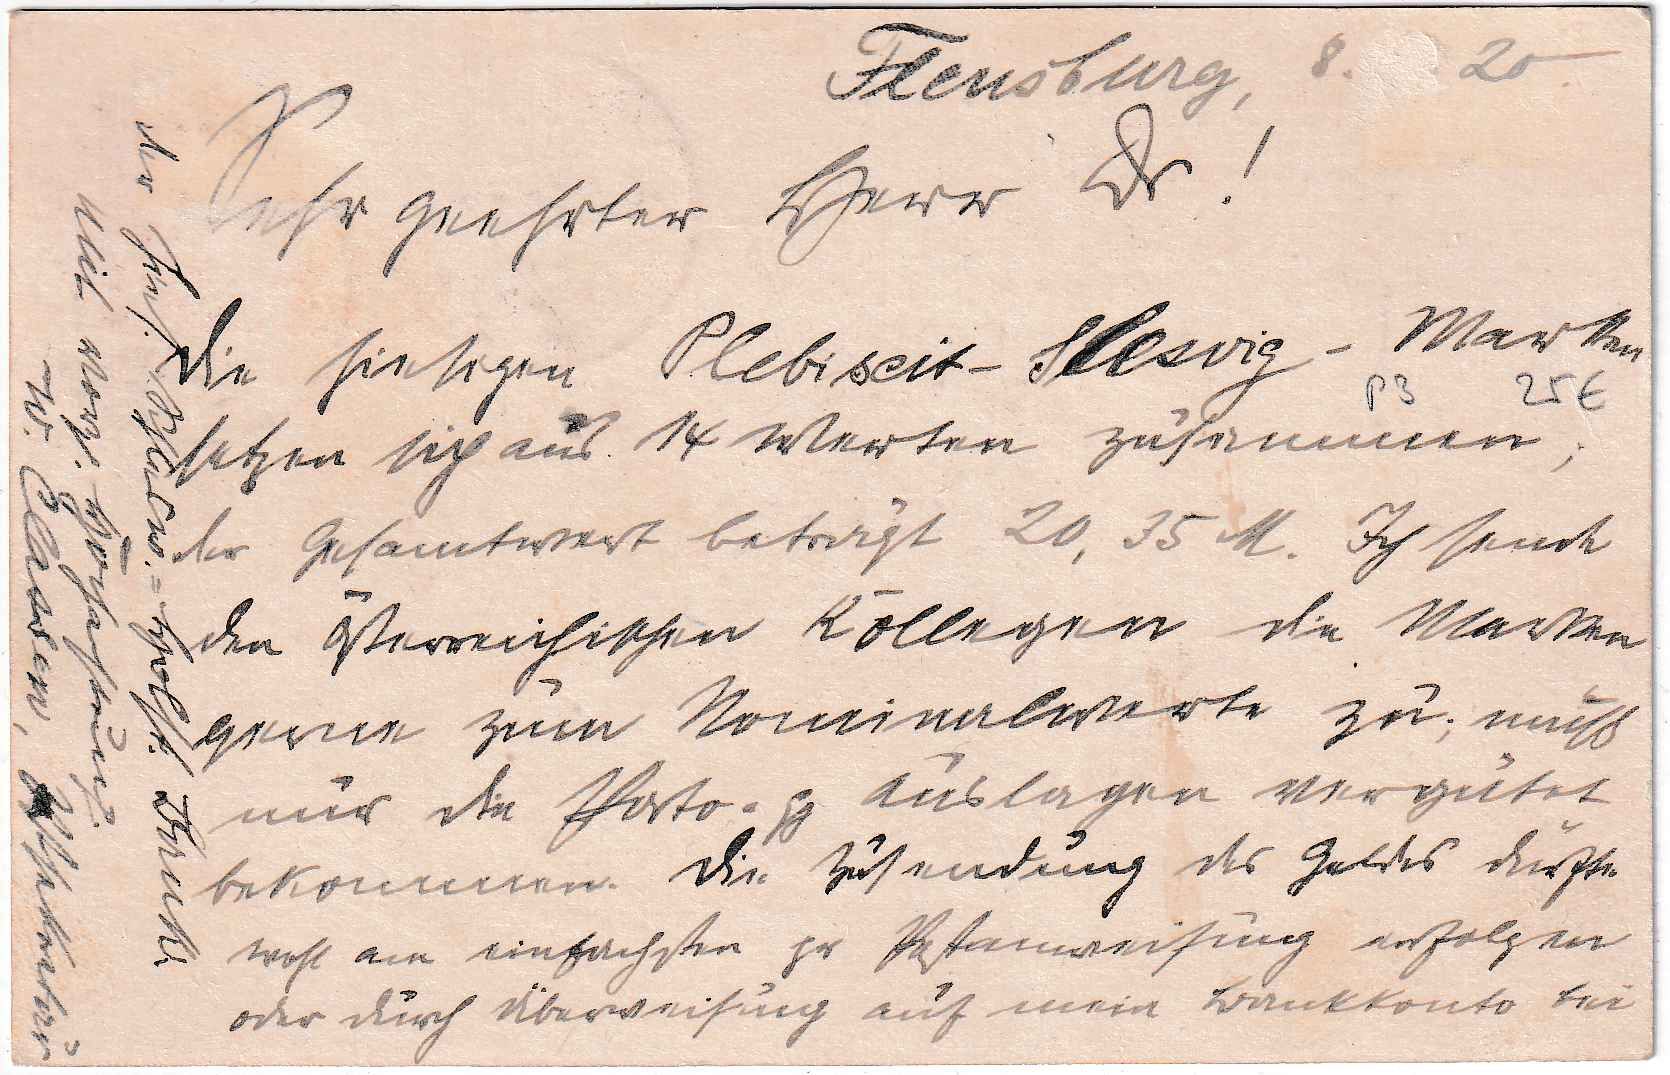 Flensburg, 8. 20
Sehr geehrter Herr Dr!
Die hiesigen Plebiscit-Slesvig-Marken
P3 25€
setzen sich aus 14 Werten zusammen;
der Gesamtwert beträgt 20,35 M. Ich sende
den österreichischen Kollegen die Marken
gerne zum Nominalwerte zu; muß
nur die Porto- Auslagen vergütet
bekommen. Die Zusendung des Geldes dürfte
wohl am einfachsten pr Postanweisung erfolgen
oder durch Überweisung auf mein Bankkonto bei
der Schlesw.-Holst. Bank.
Mit vorz. Hochachtung
W. Classen,